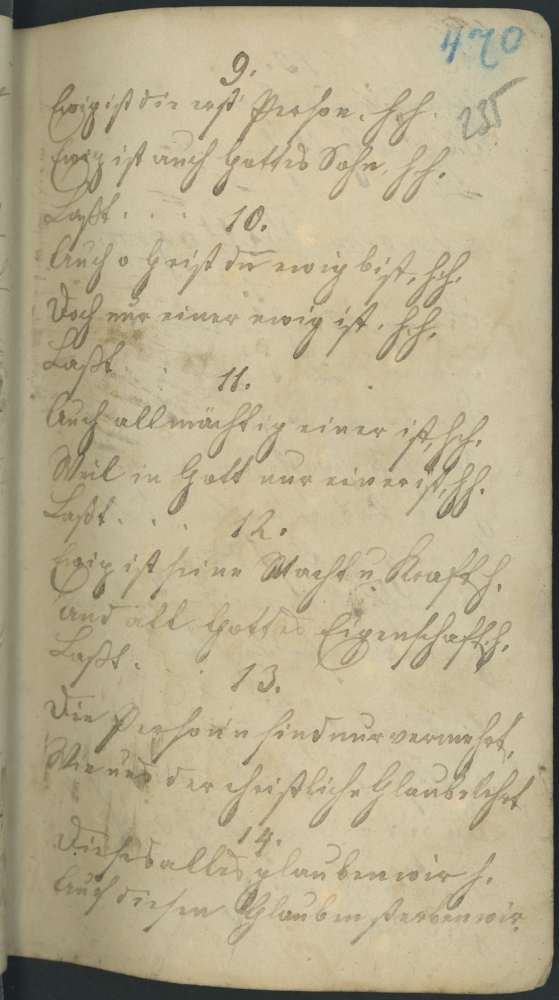 470
235
9.
Ewig ist die erst Person, h,h.
Ewig ist auch Gottes Sohn, h,h.
Laßt . . .
10.
Auch o Geist du ewig bist, h,h.
Doch nur einer ewig ist, h,h.
Laßt . . .
11.
Auch allmächtig einer ist, h,h.
Weil in Gott nur einer ist, h,h.
Laßt . . .
12.
Ewig ist seine Macht u. Kraft h,
und all Gottes Eigenschaft h,
Laßt . . .
13.
Die Person sind nur vermehrt,
Wie uns der christliche Glaube lehrt
14.
Dieses alles glauben wir h,
Auf diesen Glauben sterben wir